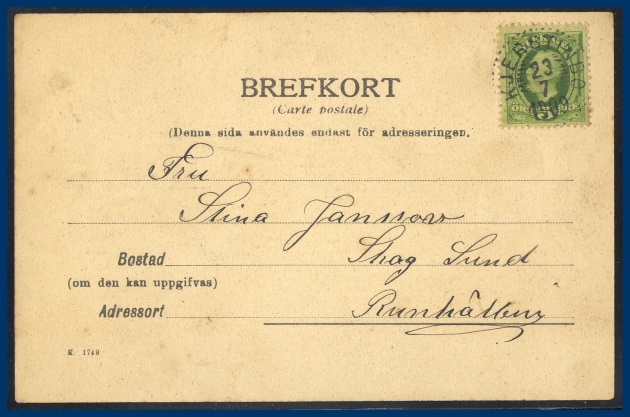 BREFKORT
(Carte postale)
(Denna sida användes endast för adresseringen.
Fru
Stina Jansson
Bostad Skog Sund
(om den kan uppgifvas)
Adressort Runhällen
K. 1749
23
7
ÖRE 5